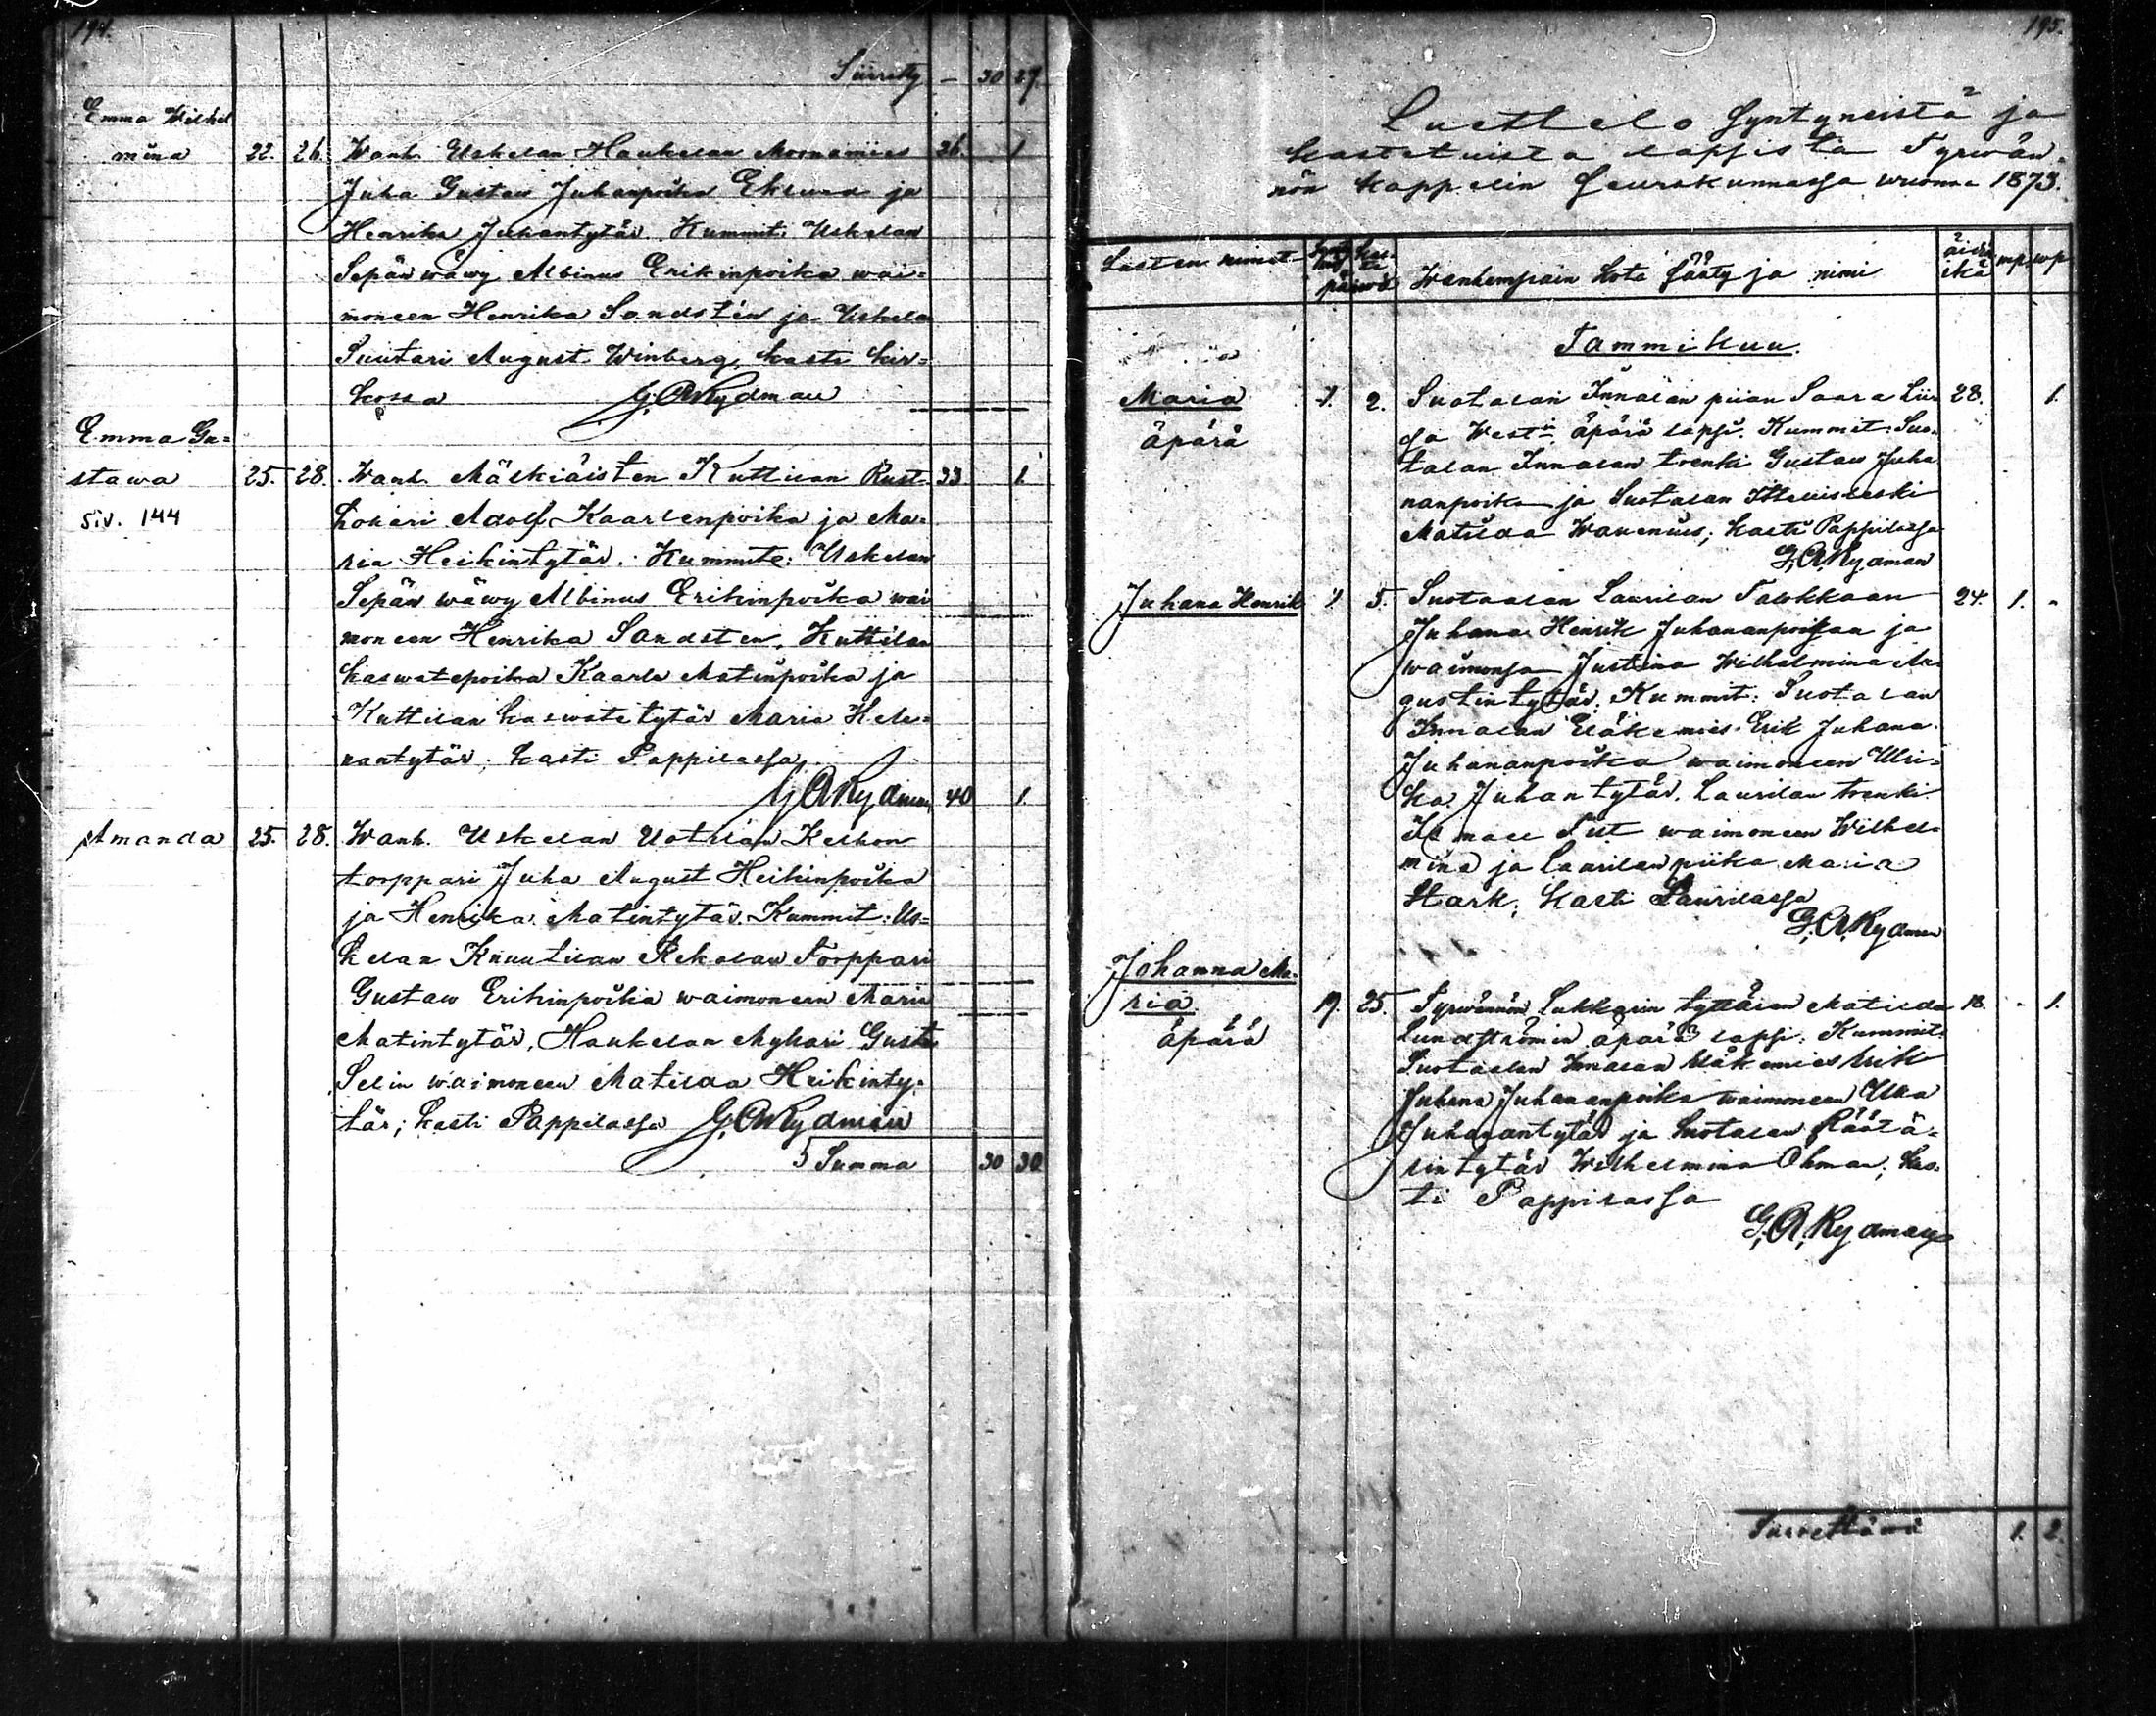 194.
Siirretty — 30 29.
Emma Wilhel
mina 22. 26. Wanh. Uskelan Haukelan Moonamies 26. 1
Juha Gustaw Juhanpoika Eklund ja
Henrika Juhantytär. Kummit: Uskelan
Sepän wäwy Albinus Erikinpoika wai=
moneen Henrika Sandstén ja Uskelan
Suutari August Winberg, kasti kir=
kossa G.A.Rydman
Emma Gu=
stawa 25. 28. Wanh. Mälkiäisten Kuttilan Rust- 33 1.
siv. 144
hollari Adolf Kaarlenpoika ja Ma=
ria Heikintytär. Kummit: Uskelan
Sepän wäwy Albinus Erikinpoika wai
moneen Henrika Sandsten, Kuttilan
kaswatepoika Kaarle Matinpoika ja
Kuttilan kaswatetytär Maria Hele=
nantytär; kasti Pappilassa
G.A.Rydman 40 1.
Amanda 25. 28. Wanh. Uskelan Uotilan Kelhon
torppari Juha August Heikinpoika
ja Henrika Matintytär. Kummit: Us=
kelan Knuutilan Rekolan Torppari
Gustaw Erikinpoika waimoneen Maria
Matintytär, Haukelan Myllari Gusta
Selin waimoneen Matilda Heikinty=
tär; kasti Pappilassa G.A.Rydman
Summa 30 30
195.
Luettelo Syntyneistä ja
kastetuista lapsista Tyrwän=
nön kappelin seurakunnassa wuonna 1873.
Lasten nimet Synty kas-te päiwä Wanhempain koto sääty ja nimi äidin ikä mp. wp
Tammikuu.
Maria 1. 2. Suotalan Innalan piian Saara Lii- 28. 1.
äpärä
sa West:n äpärä lapsi. Kummit: Suo=
talan Innalan trenki Gustaw Juha
nanpoika ja Suotalan Itellisleski
Matilda Wauenius; kasti Pappilassa
G.A.Rydman
Juhana Henrik 1 5. Suotaalan Laurilan Talokkaan 24. 1. "
Juhana Henrik Juhananpoijan ja
waimonsa Justina Wilhelmina Au=
gustintytär. Kummit: Suotalan
Innalan Eläkemies Erik Juhana
Juhananpoika waimoneen Ulri=
ka Juhantytär. Laurilan trenki
waimoneen Wilhel=
mina ja Laurilan piika Maria
Stark; kasti Laurilassa
G.A.Rydman
Johanna Ma=
ria 19. 25. Tyrwännön Lukkarin tyttären Matilda 18. - 1.
äpärä
Lundströmin äpärä lapsi. Kummit:
Suotaalan Innalan Eläkemies Erik
Juhana Juhananpoika waimoneen Ulla
Juhanantytär ja Suotalan Räätä=
lintytär Wilhelmina Öhman; kas=
ti Pappilassa
G.A.Rydman
Siirrettäwä 1. 2.